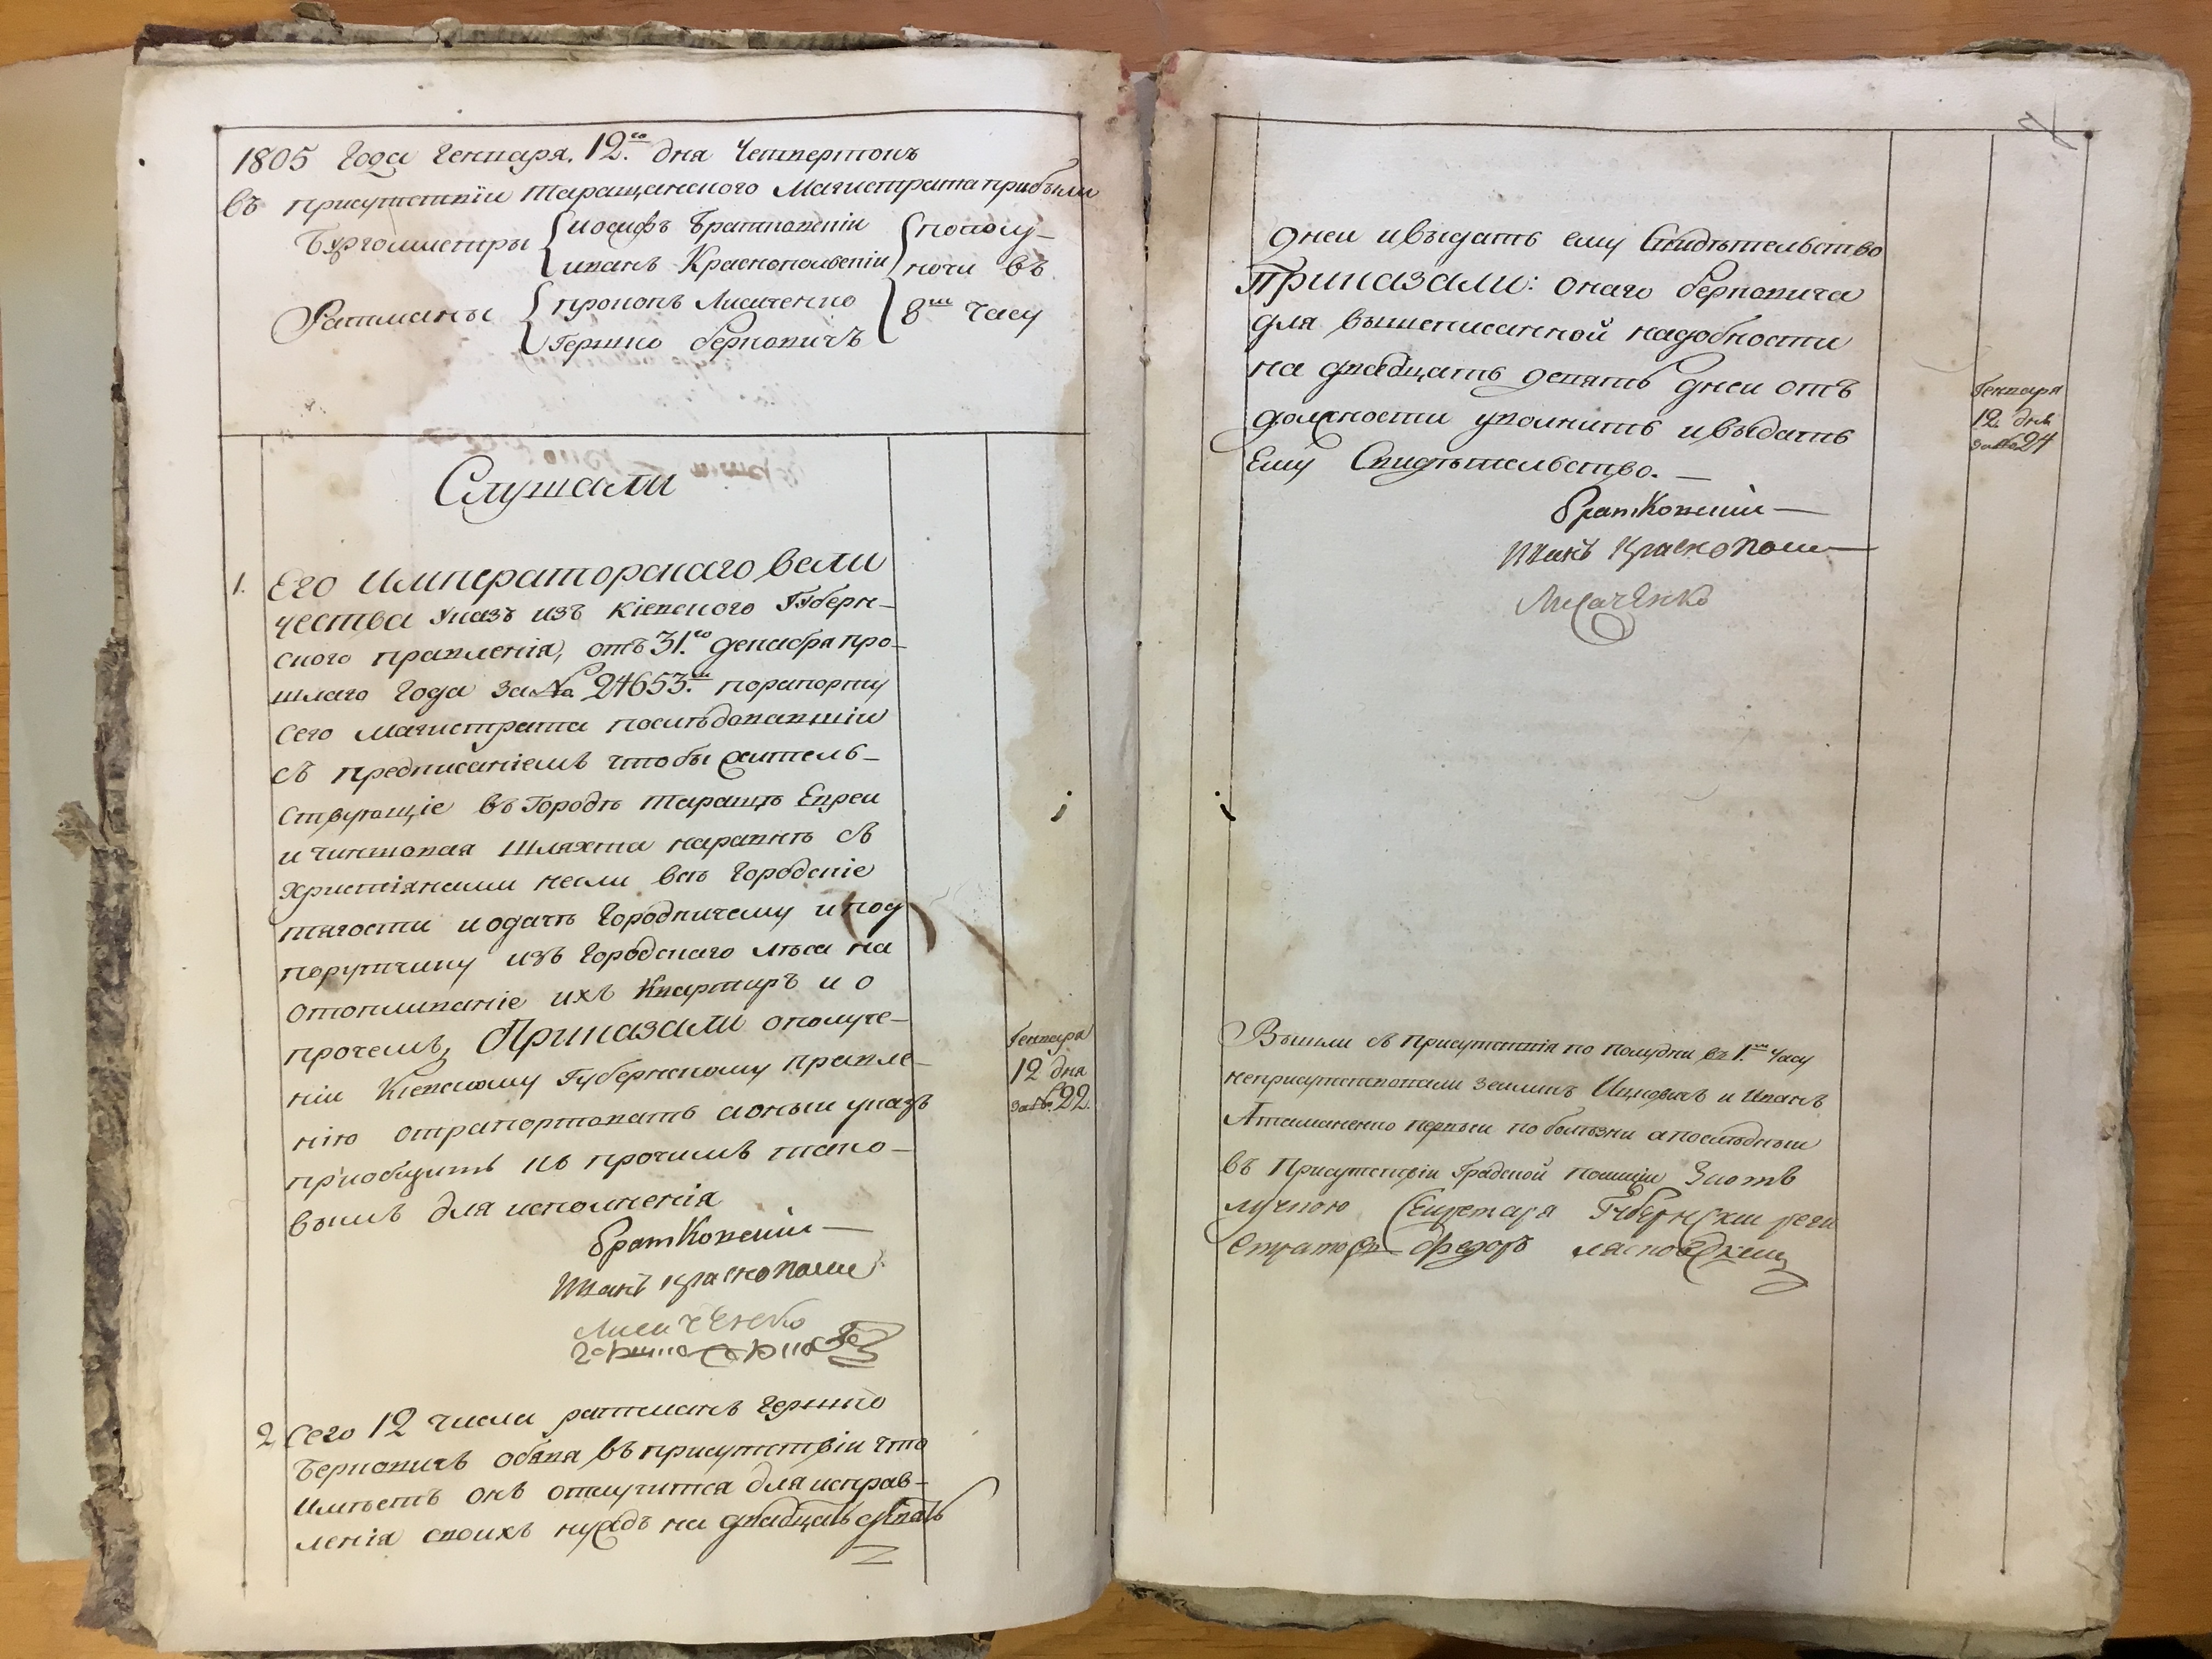 1805 Года Генваря. 12.го дня Четвертокъ
въ присутствіи Таращанского Магистрата прибыли
Бургомистры
иосифъ Братковскіи
иванъ Краснопольскіи
Ратманы
прокопъ Лисиченко
Гершко берковичъ
пополу-
ночи въ
8м часу
Слушали
1. Его Императорскаго вели
чества указъ изъ кіевского Губерн-
ского правленія, отъ 31.го декабря про-
шлаго Года за № 24653.м порапорту
сего Магистрата последовавшіи
съ предписаніемъ чтобы житель-
ствующіе въ Городѣ Таращѣ Евреи
и чиншовая шляхта наравнѣ съ
христіянами несли все Городскіе
тягости и одачѣ Городничему и под
порутчику изъ Городскаго лѣса на
отопливаніе ихъ Квартиръ и о
прочемъ, Приказали ополуче-
ніи Кіевскому Губернскому правле-
нію отрапортовать аоныи указъ
пріобщить къ прочимъ таско-
вымъ для исполненія
Генваря
12 дня
за №. 22.
братковскіи
Иванъ краснополс
Лисиченко
2. Сего 12 числа ратманъ Гершко
Берковичъ обявя въ присутствіи что
Имѣетъ онъ отлучится для исправ-
ленія своихъ нуждъ на двадцать девять
дней ивыдать ему Свидѣтельство
Приказали: онаго берковича
для вышеписанной надобности
на двадцать девять дней отъ
должности уволнить ивыдать
Ему Свидѣтельство.
Генваря
12. дня
за № 24
братковскіи
Иванъ краснополс
Лисаченко
Вышли съ присутствія по полудни въ 1.м часу
неприсутствовали Зельманъ Ицковичъ и Иванъ
Атаманенко первыи по болѣзни апослѣдныи
въ Присутствіи Градской полиціи Заотв
лучкою Секретаря Губернскіи реги
страторъ Федоръ